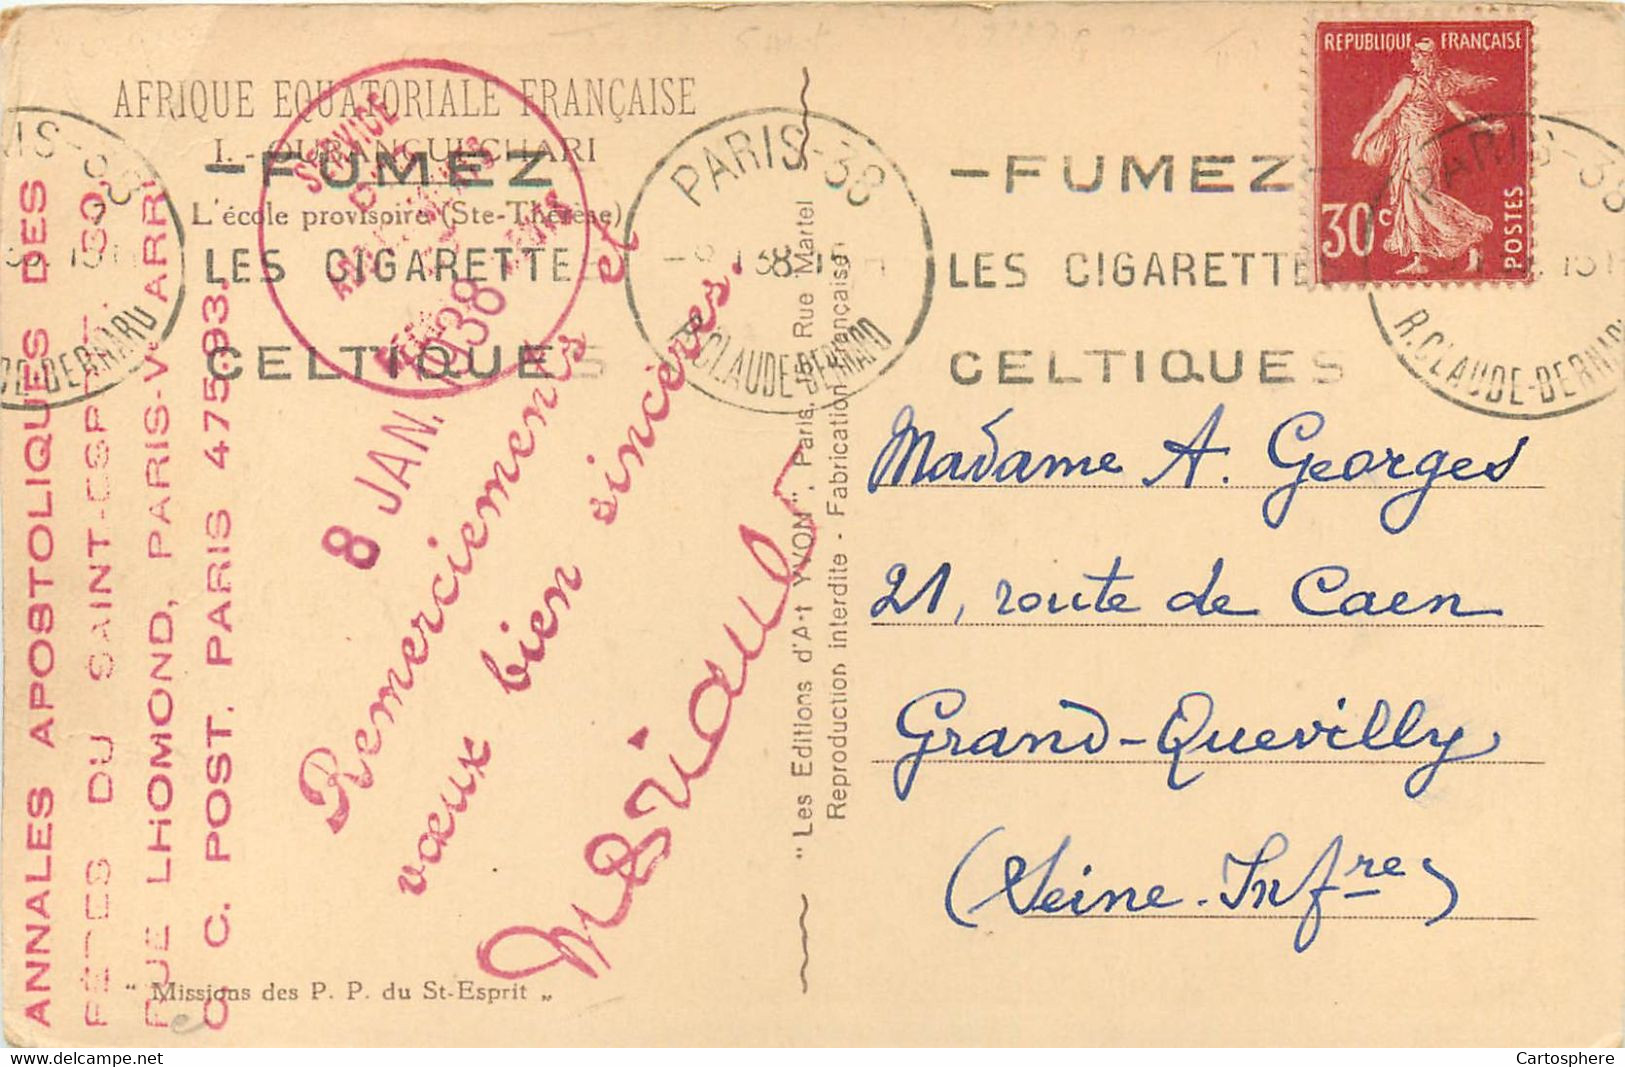 AFRIQUE EQUATORIALE FRANÇAISE
I. - OUBANGUI-CHARI
L'école provisoire (Ste-Thérèse)
ANNALES APOSTOLIQUES DES
PÈRES DU SAINT-ESPRIT
RUE LHOMOND, PARIS-V° ARRt
C. C. POST. PARIS 475.93.
SERVICE
8 JAN. 1938
Remerciements et
vœux bien sincères.
" Missions des P. P. du St-Esprit „
– FUMEZ
LES CIGARETTES
CELTIQUES
PARIS-38
R.CLAUDE-BERNARD
"Les Editions d'Art YVON", Paris, 15 Rue Martel
Reproduction interdite - Fabrication Française
– FUMEZ
LES CIGARETTES
CELTIQUES
REPUBLIQUE FRANÇAISE
30c
POSTES
PARIS-38
R.CLAUDE-BERNARD
Madame A. Georges
21, route de Caen
Grand-Quevilly
(Seine-Infre)
Cartosphere